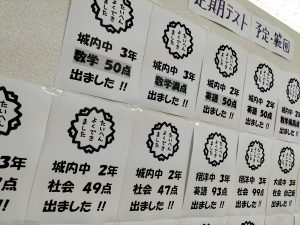 定期テスト 予定・範囲
たいへん
よくでき
ました
城内中 3年
数学 50点
出ました !!
城内中 3年
数学満点
出ました !!
城内中 2年
英語 50点
出ました !!
城内中 2年
英語 50点
出ました !!
城内中 2年
出ました !!
3年
点
!!
たいへん
よくでき
ました
城内中 2年
社会 49点
出ました !!
たいへん
よくでき
ました
城内中 2年
社会 47点
出ました !!
たいへん
よくでき
ました
翔洋中 3年
英語 93点
出ました !!
たいへん
よくでき
ました
翔洋中 3年
社会 99点
出ました !!
大成中 3年
社会 自己新
出ました !!